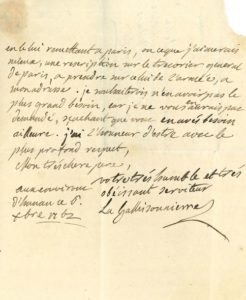 en le lui remettant a paris, ou ce que j'aimerais
mieux, une rescription sur le tresorier general
de paris, a prendre sur celui de l'armée, a
mon adresse. je souhaiterois n'en avoir pas le
plus grand besoin, car je ne vous aurais pas
demandé, sçachant que vous en avés besoin
ailleurs. j'ai l'honneur d'estre avec le
plus profond respect,
Mon trés cher pere,
votre trés humble et trés
aux environs obéissant serviteur
d'hanau ce 6. La Gallissonnierre
xbre 1762